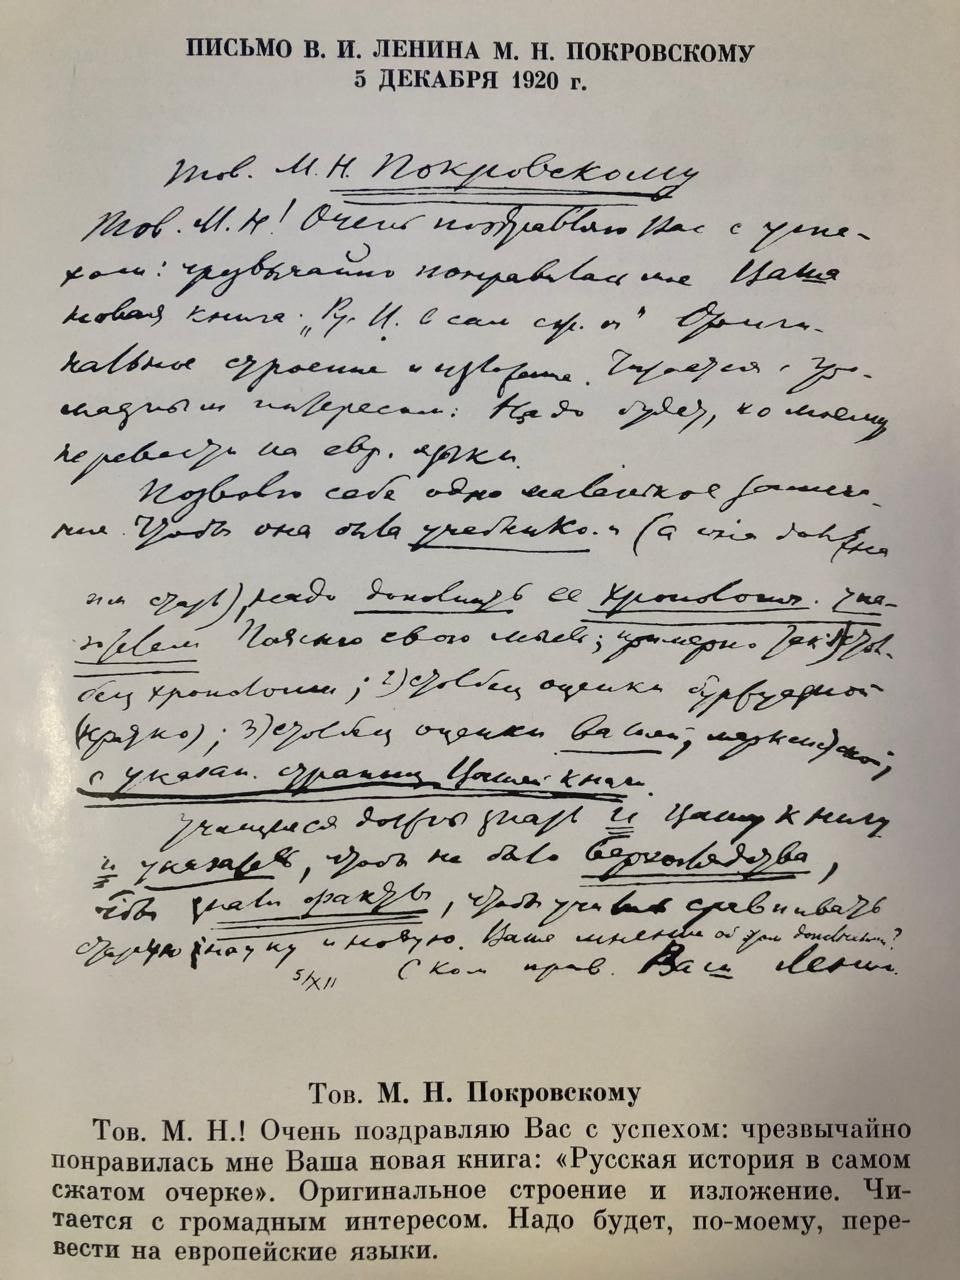 ПИСЬМО В. И. ЛЕНИНА М. Н. ПОКРОВСКОМУ
5 ДЕКАБРЯ 1920 г.
Тов. М. Н. Покровскому
Тов. М. Н.! Очень поздравляю Вас с успе-
хом: чрезвычайно понравилась мне Ваша
новая книга: „Ру. И. в сам сж. о" Ориги-
нальное строение и изложение. Читается с гро-
мадным интересом. Надо будет, по-моему
перевести на евр. языки.
Позволю себе одно маленькое замеча-
ние. Чтобы она была учебником (а она должна
им стать), надо дополнить ее хронология. ука-
зателем. Поясню свою мысль; примерно так: 1) стол-
бец хронологии; 2) столбец оценки буржуазной
(кратко); 3) столбец оценки Вашей, марксистской;
с указан. страниц Вашей книги.
Учащиеся должны знать и Вашу книгу
и указатель, чтобы не было верхоглядства,
чтобы знали факты, чтобы учились сравнивать
старую науку и новую. Ваше мнение об этом дополнении?
5/XII С ком. прив. Ваш Ленин.
Тов. М. Н. Покровскому
Тов. М. Н.! Очень поздравляю Вас с успехом: чрезвычайно
понравилась мне Ваша новая книга: «Русская история в самом
сжатом очерке». Оригинальное строение и изложение. Чи-
тается с громадным интересом. Надо будет, по-моему, пере-
вести на европейские языки.